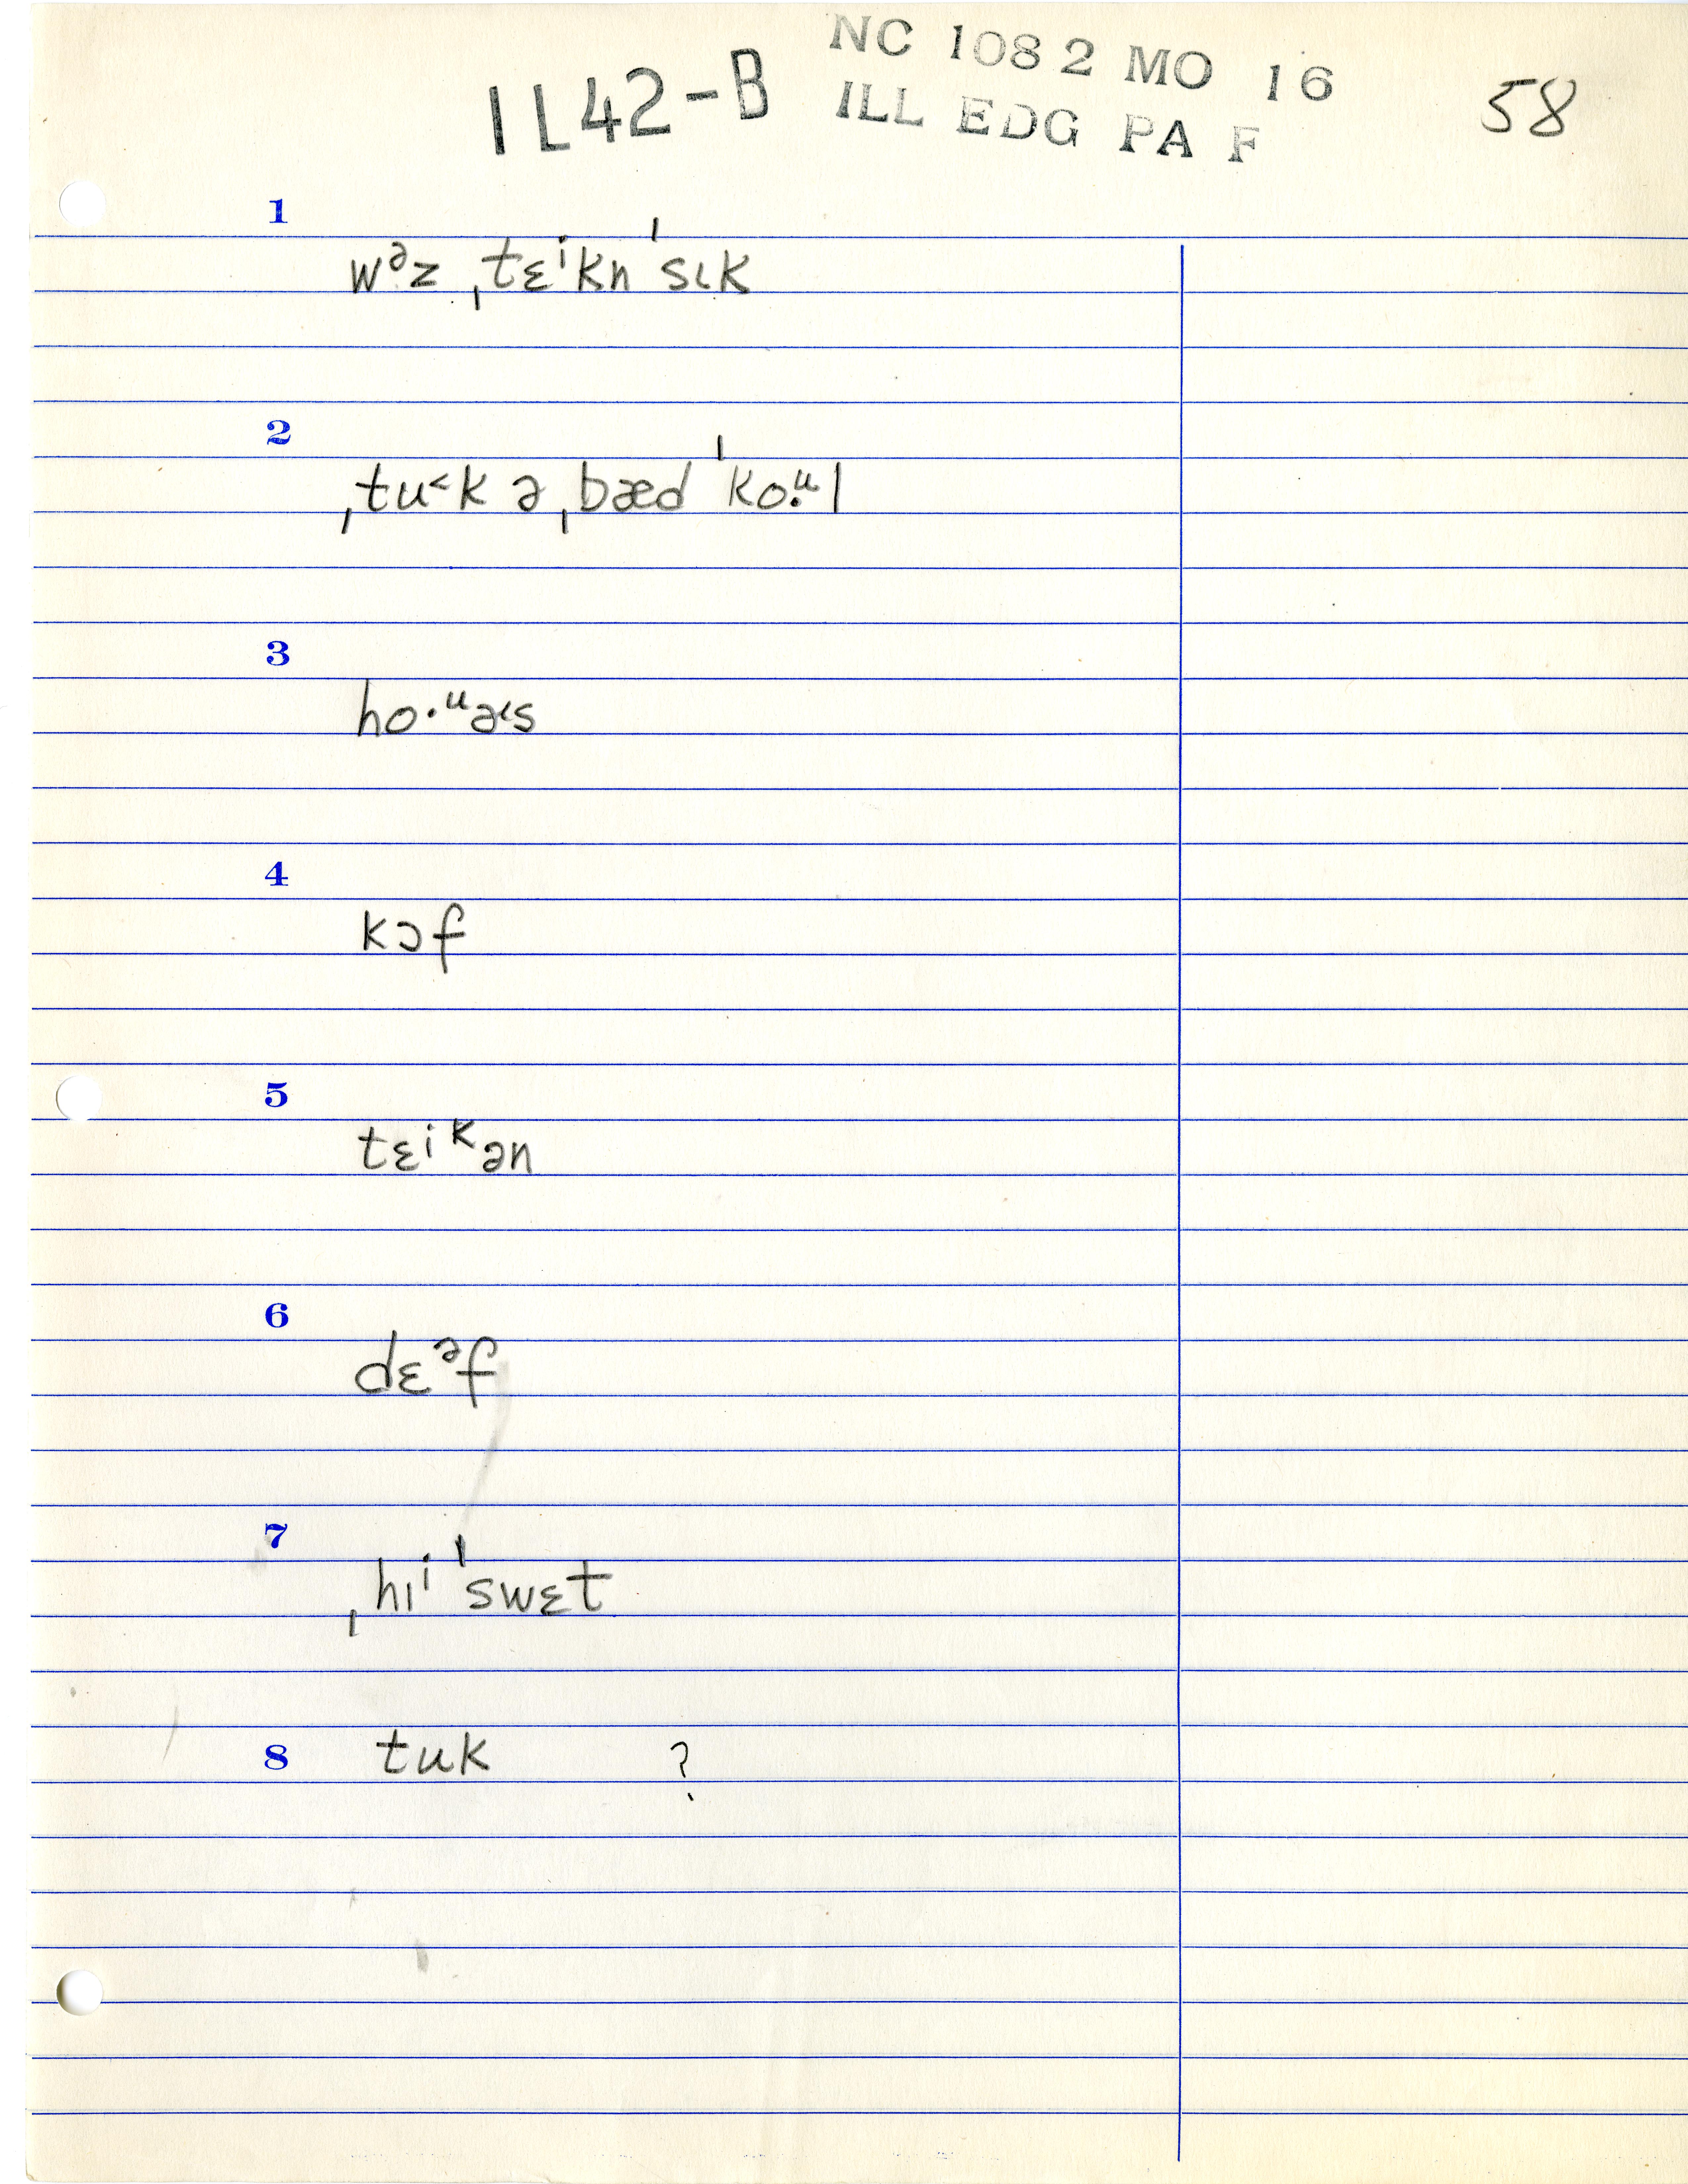 1L42-B NC 108 2 MO 16 58
ILL EDG PA F
1
wᵊz ˌtɛⁱkn ˈsɪk
2
ˌtu˂k ə ˌbæd ˈko.ᵘl
3
ho·ᵘə˞s
4
kɔf
5
tɛiᵏən
6
dɛᵊf
7
ˌhɪⁱ ˈswɛt
8 tuk ?